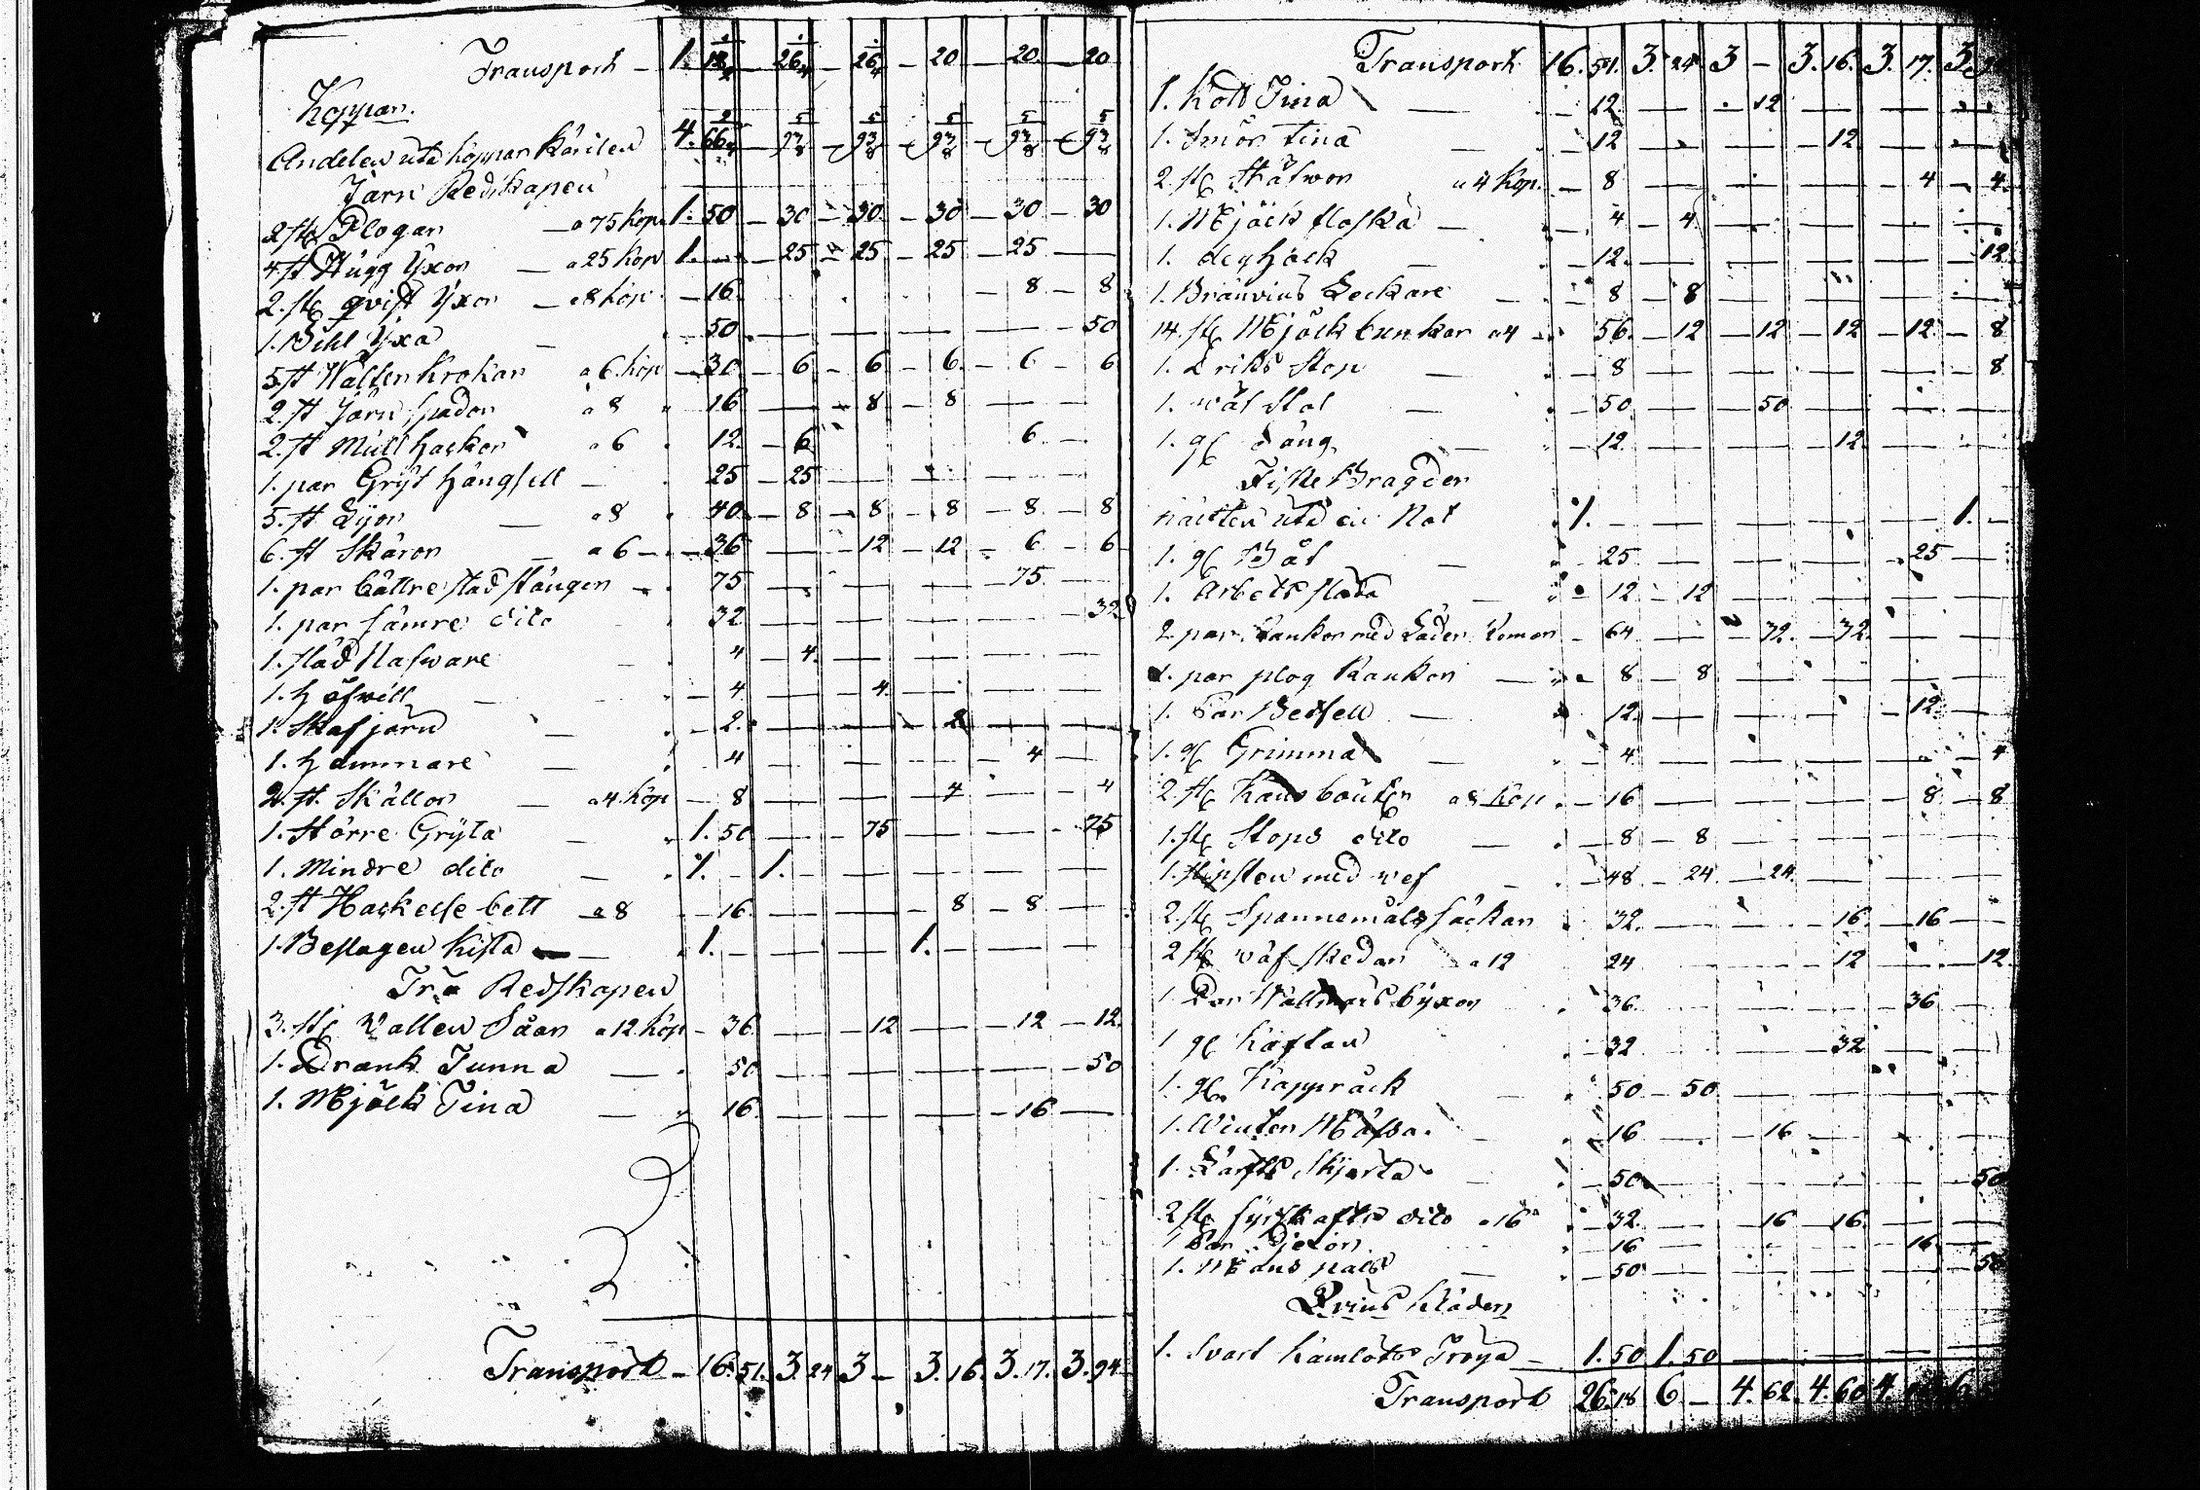 Transport - 1. 18 - 26 - 26 - 20 - 20 - 20
Koppar.
Andelen uti koppar Kärilen 4. 66
Järn Redskapen
2 st Plogar - a 75 kop 1. 50 - 30 - 30 - 30 - 30 - 30
4 st Hugg Yxor - a 25 kop 1. - - 25 - 25 - 25 - 25 -
2. st qvist Yxor - a 8 kop - 16. - 8 - 8
1. Bihl Yxa - 50. - - - - 50
5. st Watten Krokar a 6. kop - 30 - 6 - 6 - 6. - 6 - 6
2. st Järn Spador a 8 " 16 - - 8 - 8 - -
2. st Mull hackor a 6 . 12. - 6 6 -
1. par Gryt hängsell - . 25 - 25 - - - -
5. st Lijor - a 8 . 40 - 8 - 8 - 8 - 8 - 8
6. st Skäror - a 6 - 36 - - 12 - 12 - 6 - 6
1. par bättre slädstänger - . 75 - - - - 75. -
1. par sämre dito 32 - 32
1. släd Nafware - . 4 - 4. - - - -
1. höfwill - . - 4 - - 4. - - -
1. Skafjärn - . - 2. - - - 2 - -
1. hammare - . 4 - - - 4 -
2. st. Skällor - a 4. kop - 8 - - 4 - - 4
1. Större Gryta - 1. 50 - - 75 - - - 75
1. Mindre dito - . 1. - 1. - - - -
2. st Hackelse bett - a 8 - 16. - - - 8 - 8 -
1. Beslagen Kista - . 1. - - - 1. - - -
Trä Redskapen
3. st Vatten Såar a 12. kop - 36 - - 12 - - 12 - 12.
1. Drank Tunna - . 50 - - - - - 50
1. Mjölk Tina - " 16. - - - - 16 -
Transport - 16. 51. 3. 24 3 - 3. 16. 3. 17. 3. 94
Transport 16. 51. 3. 24 3 - 3. 16. 3. 17. 3.
1. Kött Tina - - 12 - - . 12 - - -
1. Smör tina - - 12 - - 12 - -
2. st a 4 kop. - 8 - - - 4 - 4.
1. Mjölk flaska - . 4 - 4. - - - -
1. - - 12. - - - - 12.
1. Bränvins Leckare - 8 - 8 - - - -
14. st Mjölk bunkar a 4 - 56. - 12 - 12 - 12 - 12. - 8
1. stop - . - 8 - - - - 8
1. wäf stol - . - 50 - - 50 - - -
1. gl Säng - 12. - - 12. - -
Fiske Bragder
uti en Not . 1. - - - - 1. -
1. gl Båt " - 25 - - - - 25 -
1. Arbets släda - 12 - 12 - - - -
2. par Rankor med Läder - 64 - - 32. - 32 - -
1. par plog Rankor - 8 - 8 - - - -
1. Par Betsell - 12. - - - - 12. -
1. gl Grimma - 4 - - - - 4
2. st a 8 kop. - 16 - - - 8 - 8
1. st Stops dito - . - 8 - 8 - - - -
1. med wef - . - 48 - 24 - 24. - - -
2. st Spannemåls säckar . 32. - - 16 - 16 -
2 st wäf skedar a 12 24 - 12 - 12.
1 Par Wallmars byxor . 36. - - 36 -
1 gl Kaftan . - 32 - - 32 - -
1. gl Kappräck - . 50 - 50 - - - -
1. Winter Mössa. - . - 16 - - 16 - - -
1. Lärfts Skjorta - . - 50 - - - - 50
2 st dito a 16 . - 32 - - 16 - 16. - -
1 Par . 16 - - 16 -
1. - . - 50 - - - - 50
Qvins Kläder
1. Svart Kamlotts Tröya - 1. 50 1. 50 - - - -
Transport 26. 18 6 - 4. 62. 4. 60 4. 6